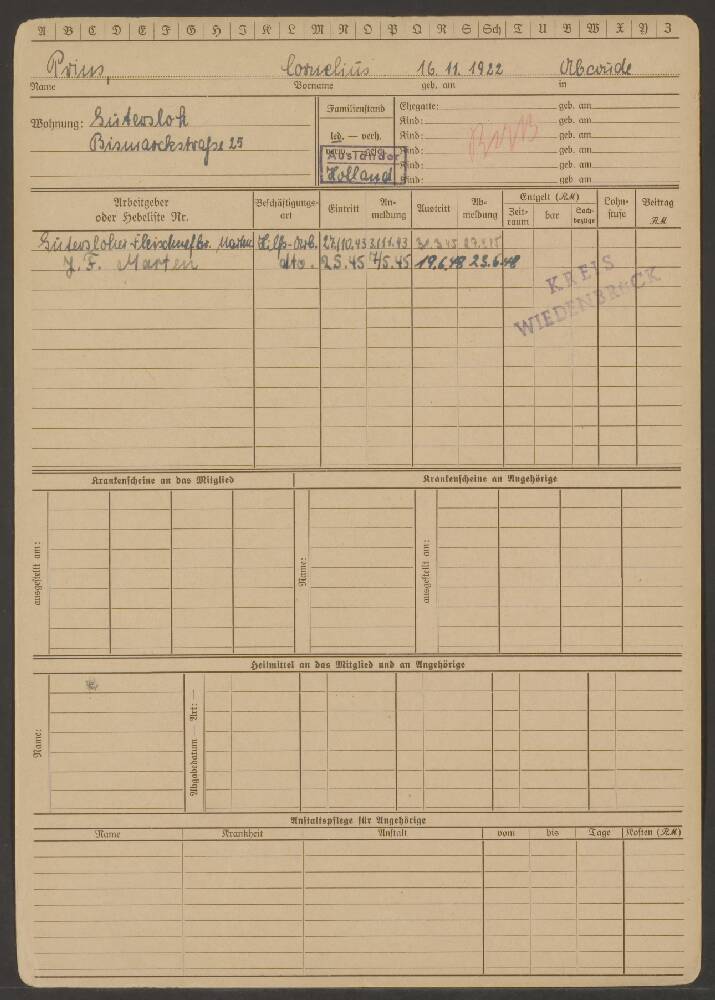 A B C D E F G H I K L M N O P Q R S Sch T U V W X Y Z
Prins, Cornelius 16.11.1922 Abcoude
Name Vorname geb. am in
Wohnung: Gütersloh
Bismarckstraße 25
Familienstand
led. — verh.
Ausländer
Holland
Ehegatte: geb. am
Kind: geb. am
Kind: geb. am
Kind: geb. am
Kind: geb. am
Kind: geb. am
Arbeitgeber oder Hebeliste Nr. Beschäftigungsart Eintritt Anmeldung Austritt Abmeldung Entgelt (RM) Zeitraum bar Sachbezüge Lohnstufe Beitrag RM
Gütersloher Marten Hilfs-Arb. 27/10.43 3/11.43 31.3.45
J. F. Marten dto. 2.5.45 7/5.45 19.6.48 23.6.48
KREIS
WIEDENBRÜCK
Krankenscheine an das Mitglied Krankenscheine an Angehörige
ausgestellt am: Name: ausgestellt am:
Heilmittel an das Mitglied und an Angehörige
Name: Abgabedatum — Art: —
Anstaltspflege für Angehörige
Name Krankheit Anstalt vom bis Tage Kosten (RM)